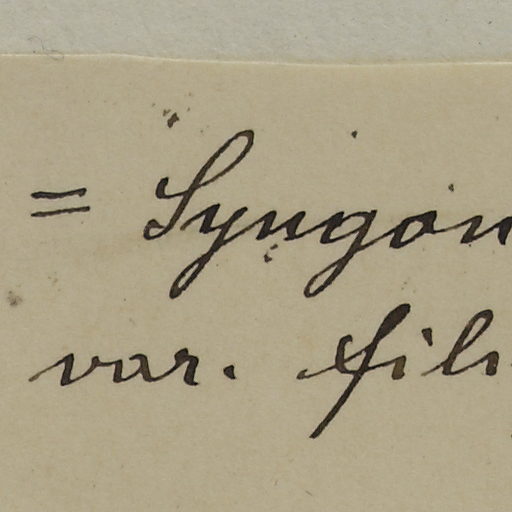 = Syngon
var. fili